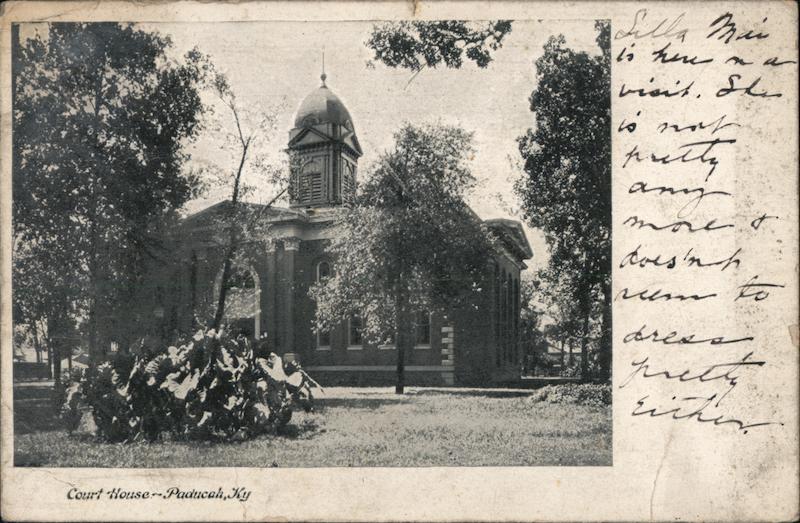 Lilla Mai
is here on a
visit. She
is not
pretty
any
more &
does'nt
seem to
dress
pretty
either.
Court House--Paducah, Ky